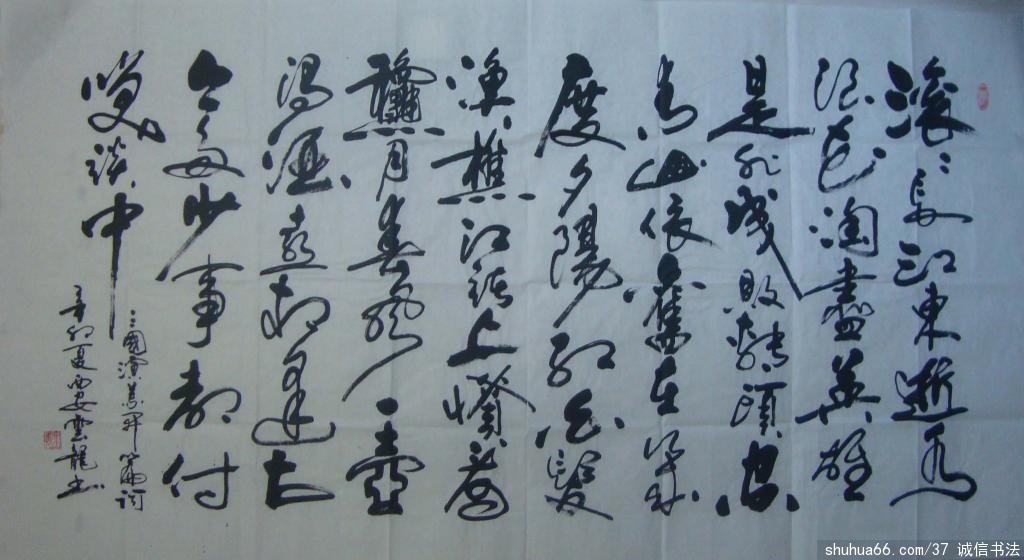 滚々長江東逝水
浪花淘盡英雄
是非成敗轉頭空
青山依舊在幾
度夕陽紅白髮
漁樵江渚上慣看
龝月春風一壺
濁酒喜相逢古
今多少事都付
笑談中
三國演義開篇詞
辛卯夏西安雲龍书
shuhua66.com/37 诚信书法